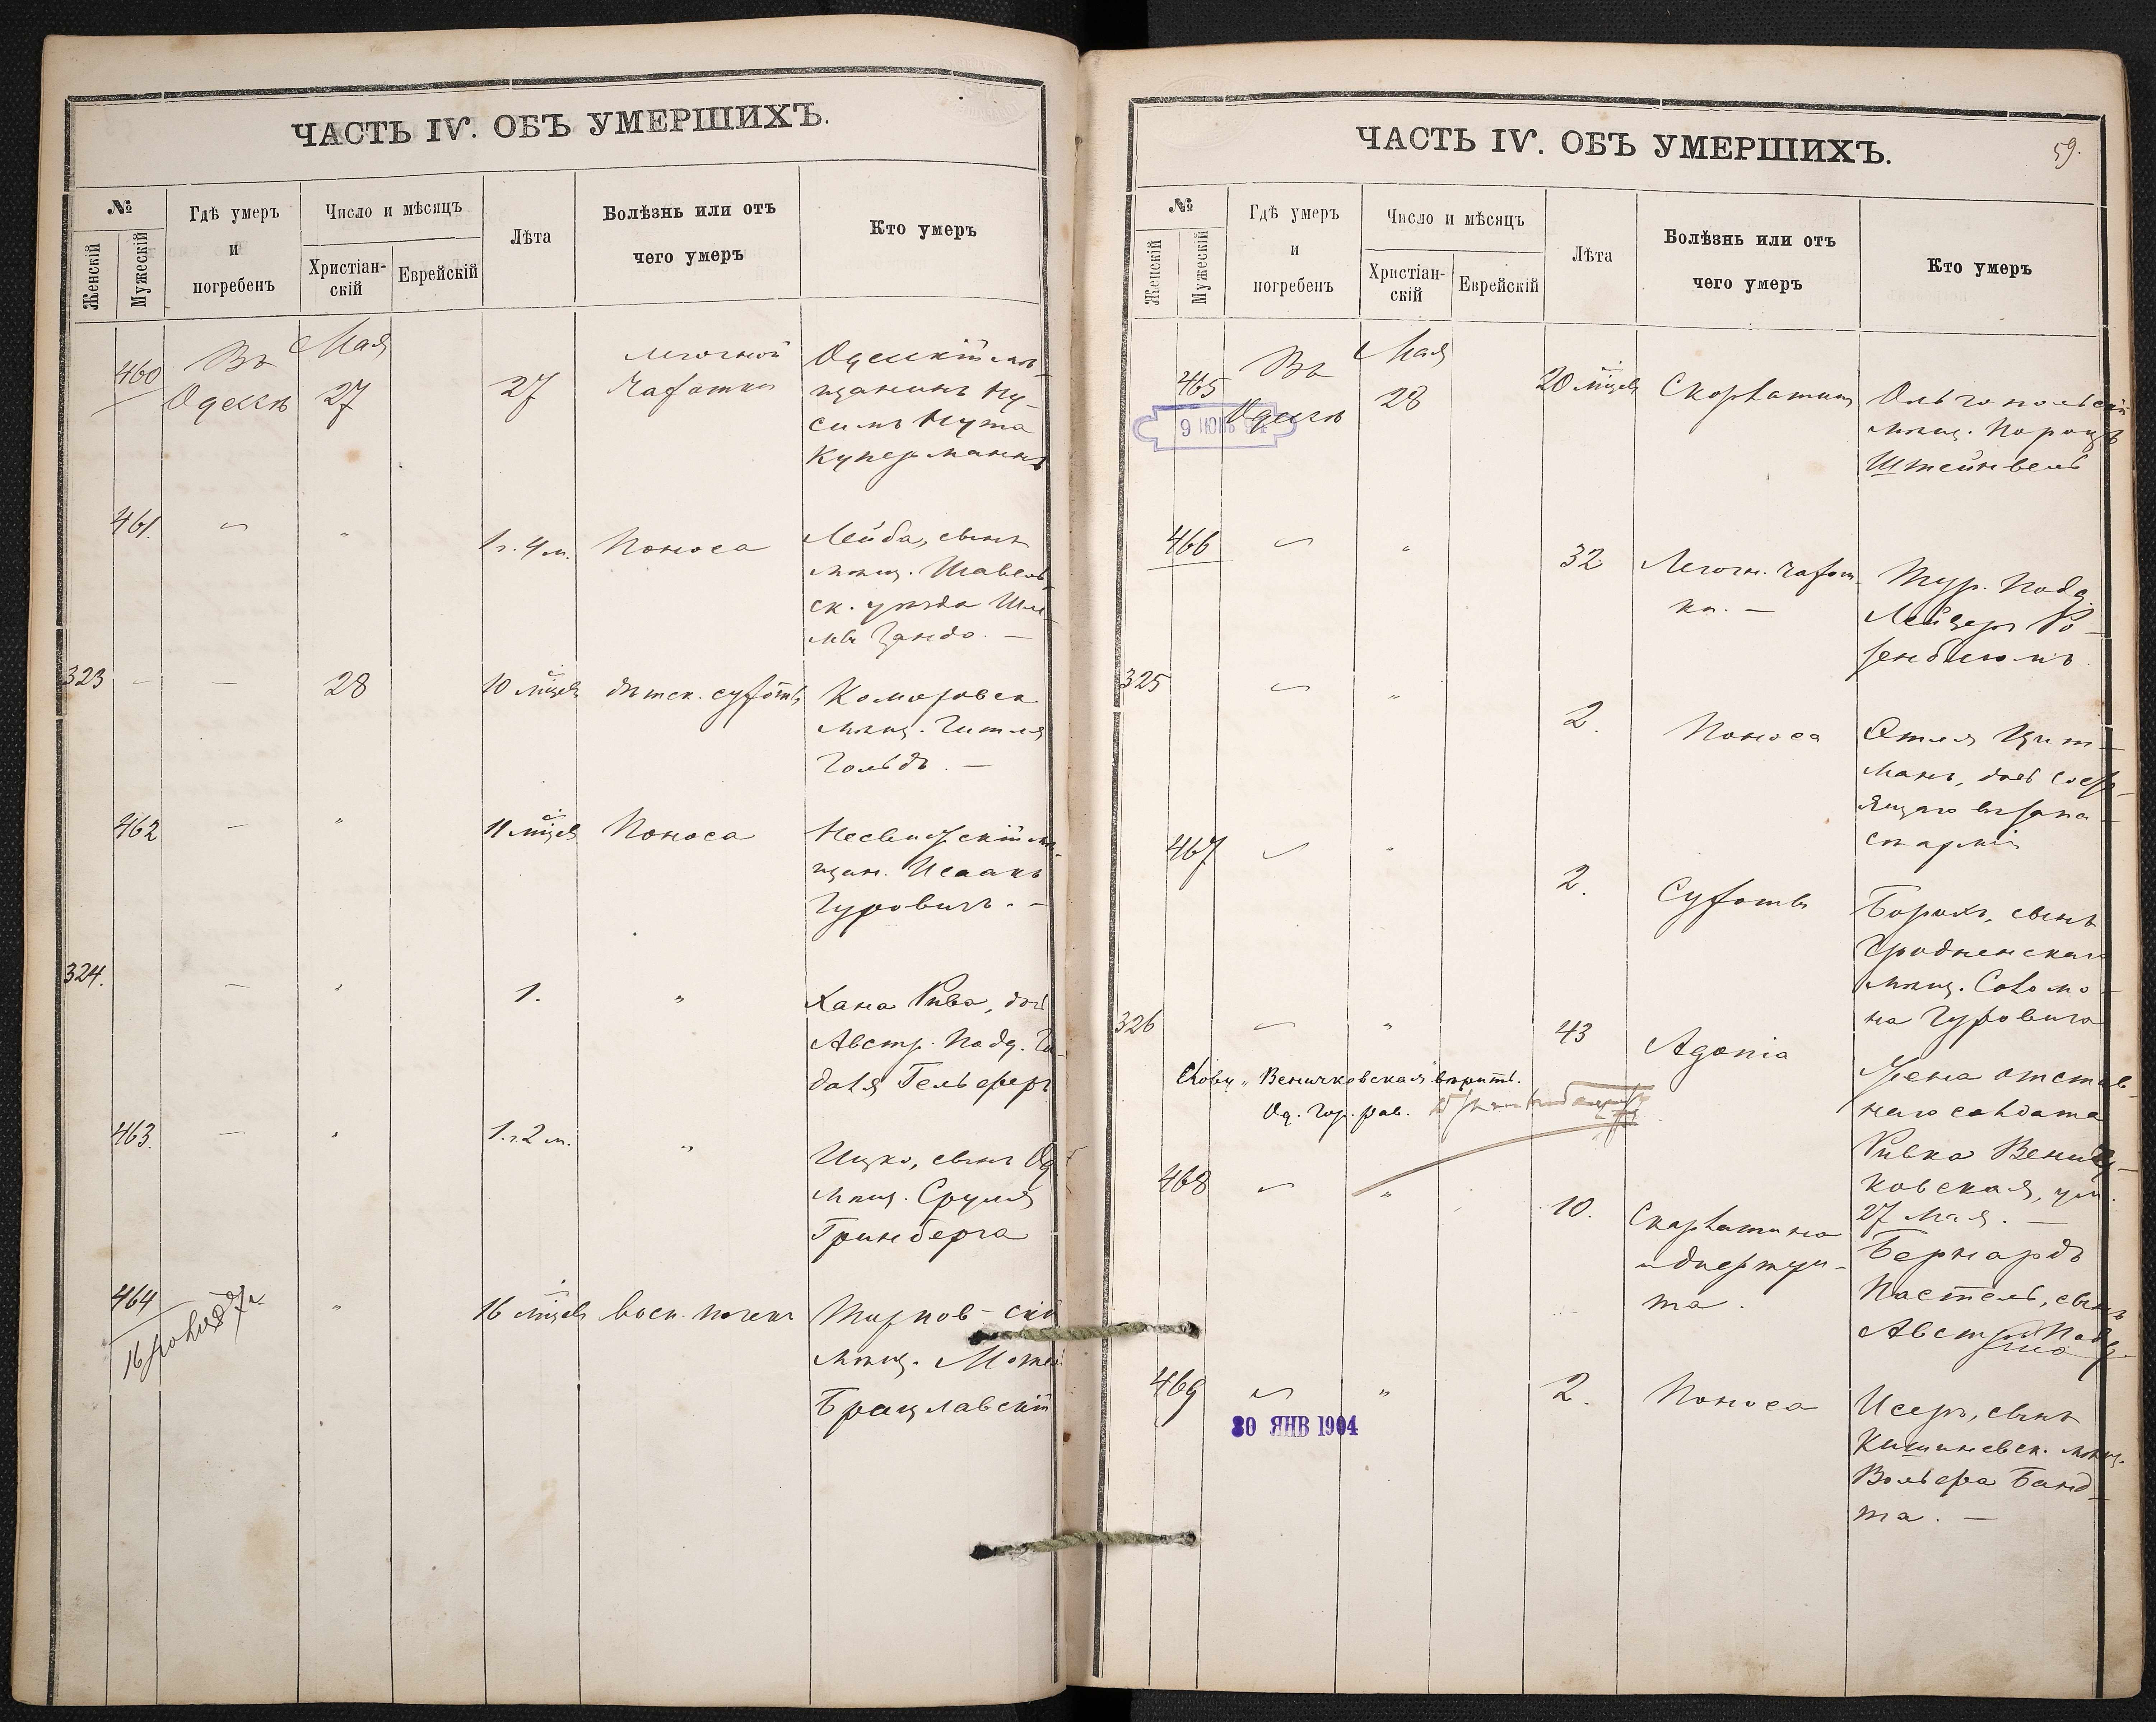 ЧАСТЬ IV. ОБЪ УМЕРШИХЪ.
№
Женскій
Мужескій
Гдѣ умеръ
и
погребенъ
Число и мѣсяцъ
Христіан-
скій
Еврейскій
Лѣта
Болѣзнь или отъ
чего умеръ
Кто умеръ
460
Въ
Одессѣ
Мая
27
27
легочной
чахотки
Одесскій мѣ-
щанинъ Ну-
симъ Нута
Куперманнъ
461.
"
1 г. 4 м.
Поноса
Лейба, сынъ
мѣщ. Шавель-
ск. уѣзда Шле-
мы
323
—
—
28
10 мѣсц.
дѣтск. сухоты
Коморовск.
мѣщ. Гитля
Гольдъ. —
462
—
"
11 мѣсц.
Поноса
Несвижскій мѣ-
щан. Исаакъ
Гуровичъ. —
324.
—
"
1.
"
Хана Рива, дочь
Австр. Подд. Ге-
даля Гельферъ
463.
—
"
1 г. 2 м.
"
Ицко, сынъ Од.
мѣщ. Сруля
Гринберга
464
"
16 мѣсц.
восп. почекъ
Тирпов-скій
мѣщ. Мотель
Брацлавскій
ЧАСТЬ IV. ОБЪ УМЕРШИХЪ.
59.
№
Женскій
Мужескій
Гдѣ умеръ
и
погребенъ
Число и мѣсяцъ
Христіан-
скій
Еврейскій
Лѣта
Болѣзнь или отъ
чего умеръ
Кто умеръ
465
Въ
Одессѣ
Мая
28
20 мѣсц.
Скарлатин.
Ольгопольскій
мѣщ.
Штейнвель
466
"
32
Легочн. чахот-
ки. —
Тур. Подд.
Лейзеръ Ро-
зенблюмъ.
325
"
2.
Поноса
Этля Цит-
манъ, дочь состо-
ящаго въ запа-
сѣ арміи
467
"
2.
Сухоты
Борухъ, сынъ
Гродненскаго
мѣщ. Соломо-
на Гуровича
326
"
43
Agonia
Жена отстав-
наго солдата
Ривка Венич-
ковская, ум.
27 Мая. —
Слову „Веничковская" вѣрить.
Од. Гор. рав.
468
"
10.
Скарлатина
и дифтери-
та.
Бернардъ
Пастель, сынъ
Австрій Подд.
469
"
2.
Поноса
Исеръ, сынъ
Кишиневск. мѣщ.
Вольфа Банд-
та. —
30 ЯНВ 1904